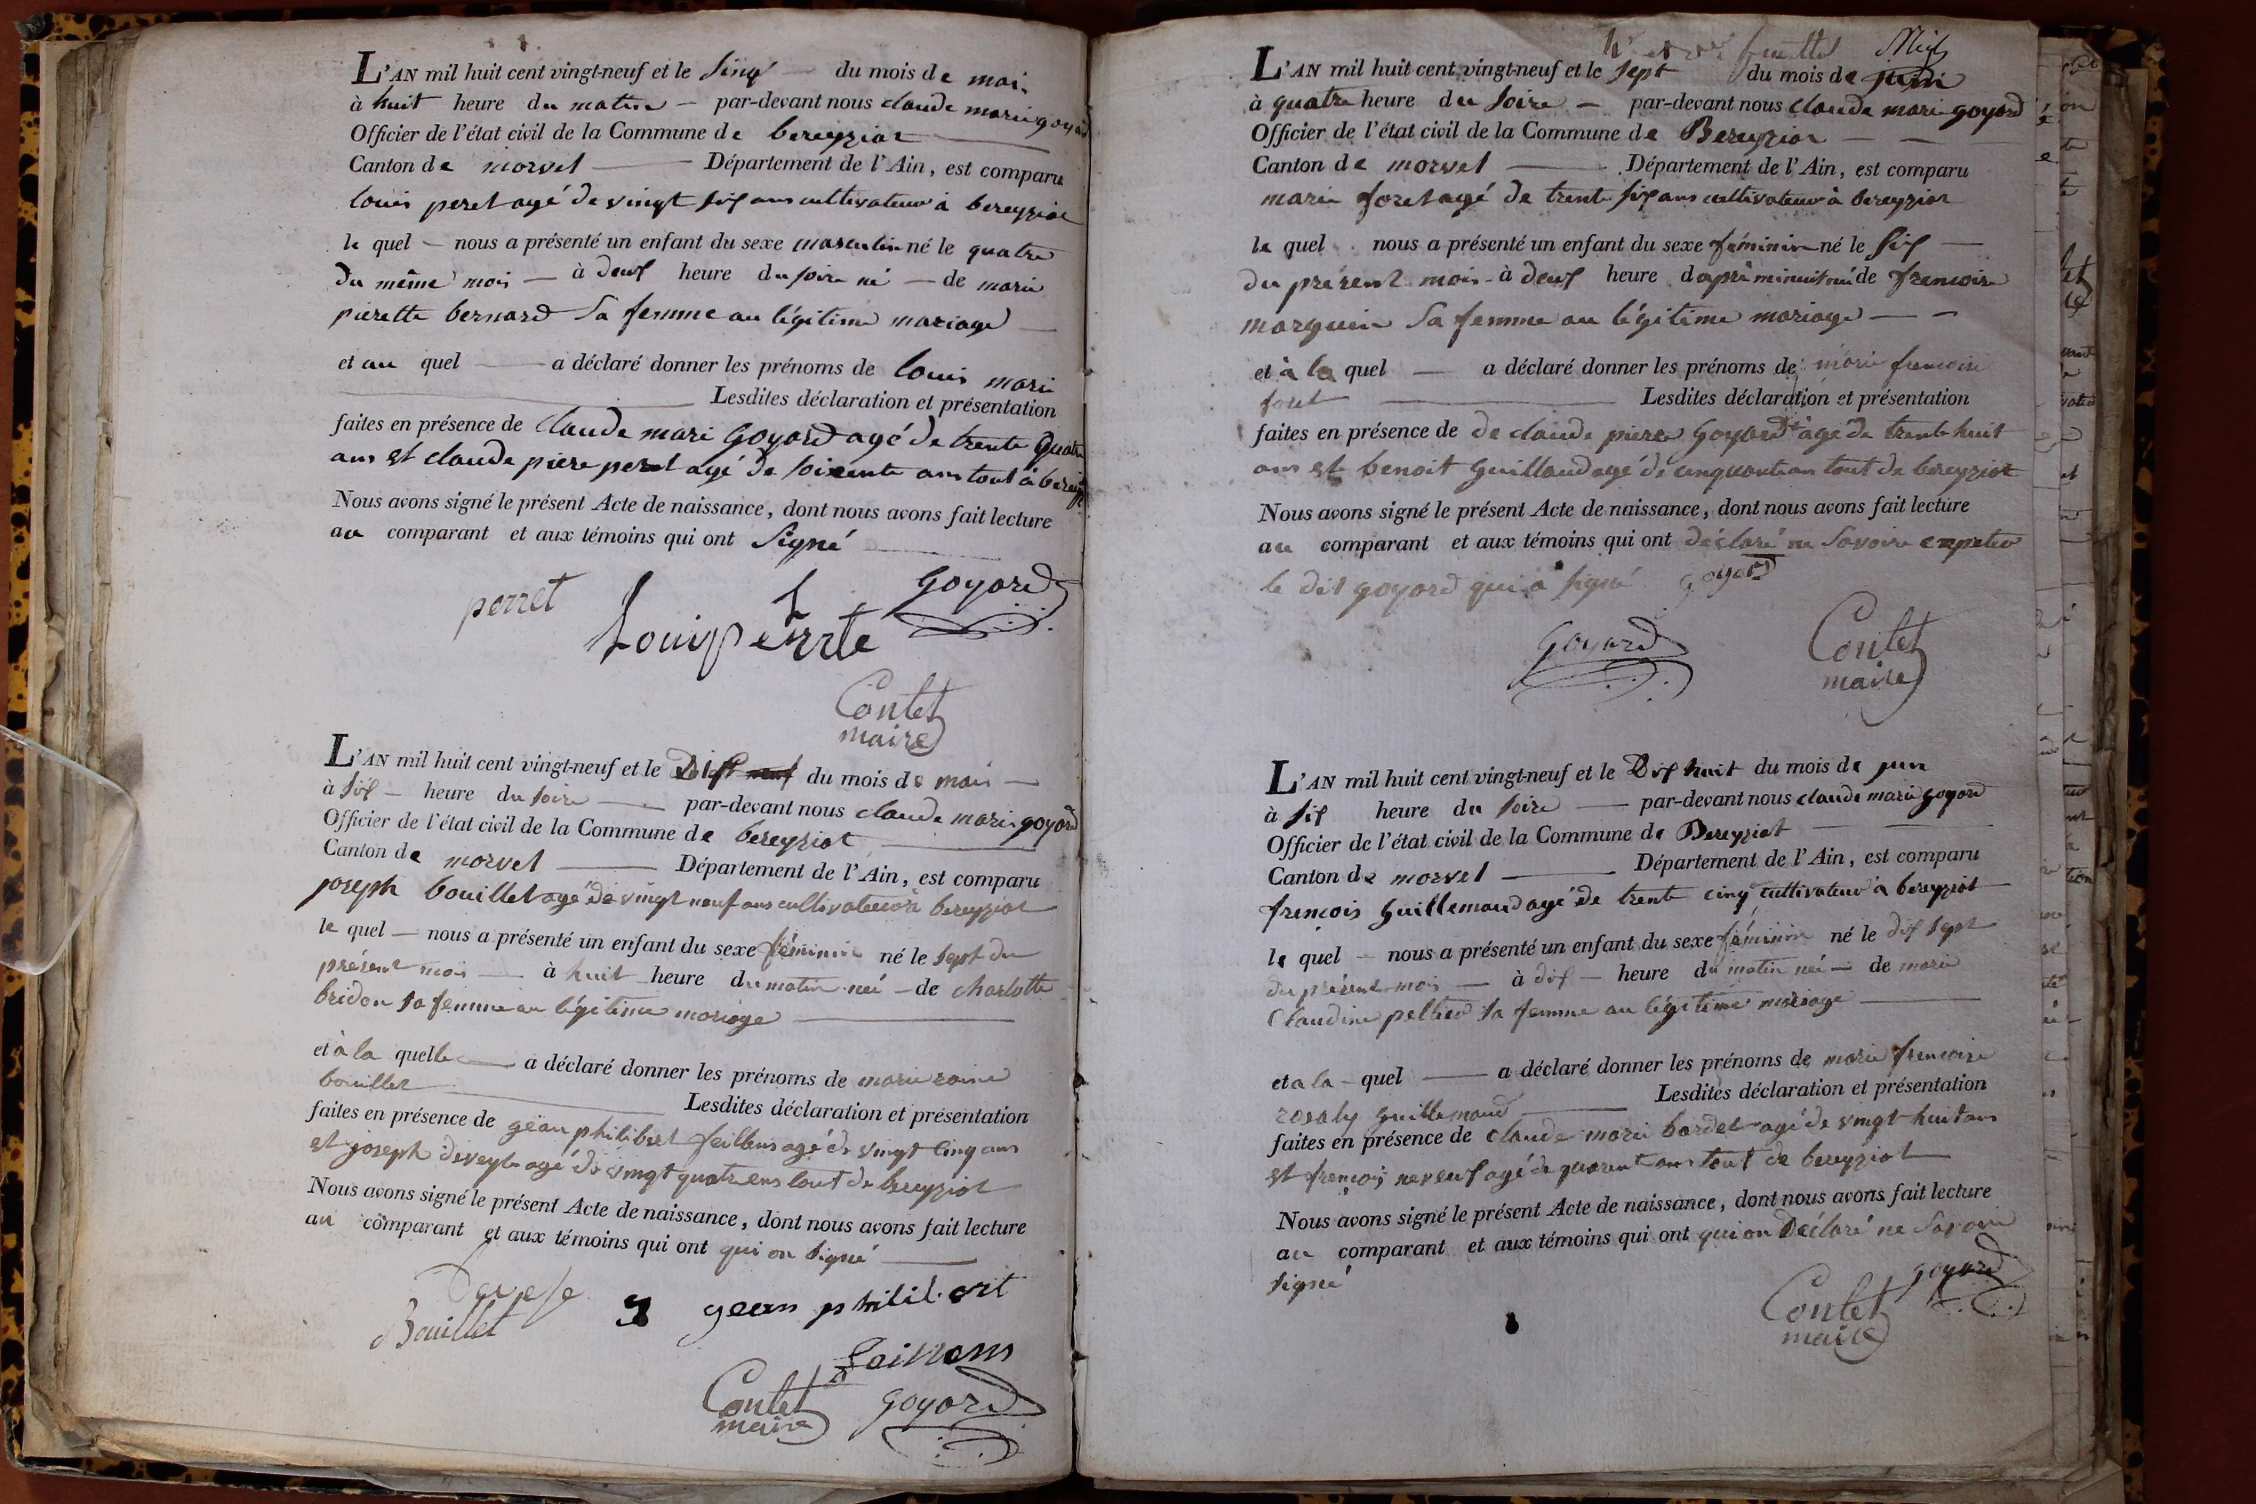 L'AN mil huit cent vingt-neuf et le sinq du mois de mai
à huit heure du matin par-devant nous claude marie goyard
Officier de l'état civil de la Commune de bereyziat
Canton de morvel Département de l'Ain, est comparu
louis peret agé de vingt six ans cultivateur à bereyziat
le quel nous a présenté un enfant du sexe masculin né le quatre
du même mois à deux heure du soire né de marie
pierette bernard sa femme au légitime mariage
et au quel a déclaré donner les prénoms de louis marie
Lesdites déclaration et présentation
faites en présence de claude mari Goyard agé de trente quatre
ans et claude piere peret agé de soixente ans tout à bereyziat
Nous avons signé le présent Acte de naissance, dont nous avons fait lecture
au comparant et aux témoins qui ont signé
perret Goyard
Loui perrte
Contet
maire
L'AN mil huit cent vingt-neuf et le du mois de mais
à six heure du soire par-devant nous claude marie goyard
Officier de l'état civil de la Commune de bereyziat
Canton de morvel Département de l'Ain, est comparu
joseph bouillet agé de vingt neuf ans cultivateur à bereyziat
le quel nous a présenté un enfant du sexe féminin né le sept du
présent mois à huit heure du matin neé de charlotte
bridon sa femme au légitime mariage
et à la quelle a déclaré donner les prénoms de marie
bouillet
Lesdites déclaration et présentation
faites en présence de gean philibert faillens agé de vingt cinq ans
et joseph deveyle agé de vingt quatre ens tout de bereyziat
Nous avons signé le présent Acte de naissance, dont nous avons fait lecture
au comparant et aux témoins qui ont qui on signé
Bouillet gean philibert
Contet
maire Goyard
feuillet
L'AN mil huit cent vingt-neuf et le sept du mois de juin
à quatre heure du soire par-devant nous claude marie goyard
Officier de l'état civil de la Commune de Bereyziat
Canton de morvel Département de l'Ain, est comparu
marie foret agé de trente six ans cultivateur à bereyziat
le quel nous a présenté un enfant du sexe féminin né le six
du présent mois à deux heure d'aprê minuit neé de frencoise
marguin sa femme au légitime mariage
et à la quel a déclaré donner les prénoms de marie frencoise
foret Lesdites déclaration et présentation
faites en présence de de claude pierre Goyard agé de trente huit
ans et benoit Guillaud agé de cinquante ans tout de bereyziat
Nous avons signé le présent Acte de naissance, dont nous avons fait lecture
au comparant et aux témoins qui ont déclaré ne savoire
le dit goyard qui a signé goyard
Goyard Contet
maire
L'AN mil huit cent vingt-neuf et le dix huit du mois de juin
à six heure du soire par-devant nous claude marie goyard
Officier de l'état civil de la Commune de Bereyziat
Canton de morvel Département de l'Ain, est comparu
françois Guillemaud agé de trente cinq cultivateur à bereyziat
le quel nous a présenté un enfant du sexe féminin né le dix sept
du présent mois à dix heure du matin neé de marie
Claudine peltier sa femme au légitime mariage
et a la quel a déclaré donner les prénoms de marie frencoise
rosaly Guillemaud Lesdites déclaration et présentation
faites en présence de claude marie bordet agé de vingt huit ans
et françois neveu agé de quarent ans tout de bereyziat
Nous avons signé le présent Acte de naissance, dont nous avons fait lecture
au comparant et aux témoins qui ont qui on déclaré ne savoir
signé
Contet goyard
maire